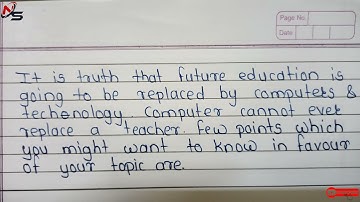 NS
Page No.
Date
It is truth that future education is
going to be replaced by computers &
technology. Computer cannot ever
replace a teacher. Few points which
you might want to know in favour
of your topic are.